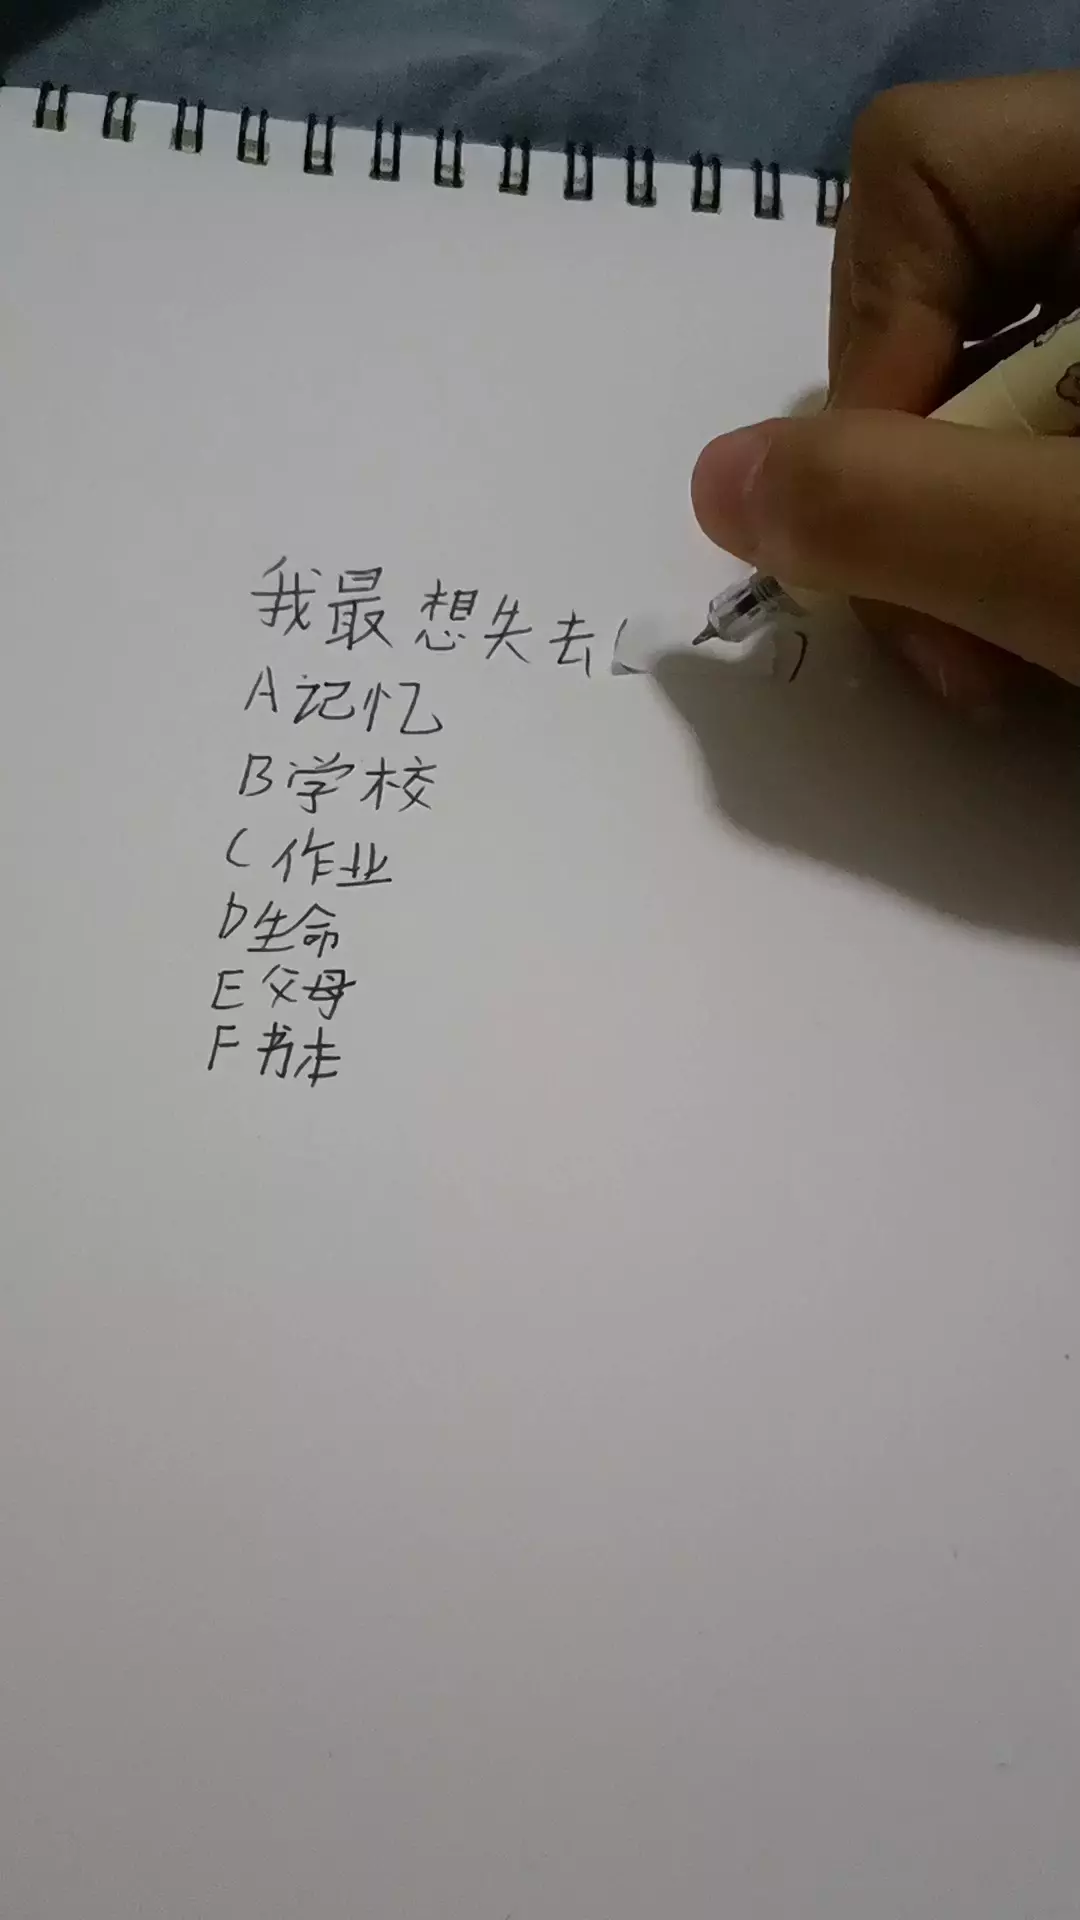 我最想失去( )
A记忆
B学校
C作业
D生命
E父母
F书本